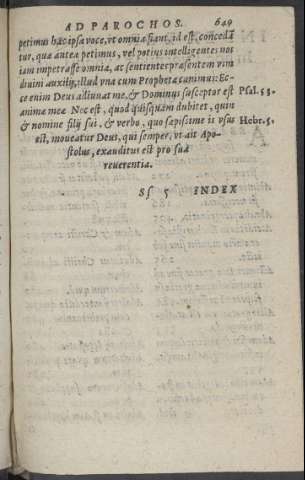 AD PAROCHOS. 649
petimus hac ipsa voce, vt omnia fiant, id est, concedã
tur, quæ antea petimus, vel potius intelligentes nos
iam impetrasse omnia, ac sentientes præsentem vim
diuini auxilij, illud vna cum Propheta canimus: Ec-
ce enim Deus adiuuat me, & Dominus susceptor est Psal. 53.
animæ meæ. Nec est, quod quisquam dubitet, quin
& nomine filij sui, & verbo, quo sæpissime is vsus Hebr. 5.
est, moueatur Deus, qui semper, vt ait Apo-
stolus, exauditus est pro sua
reuerentia.
Ss 5 INDEX